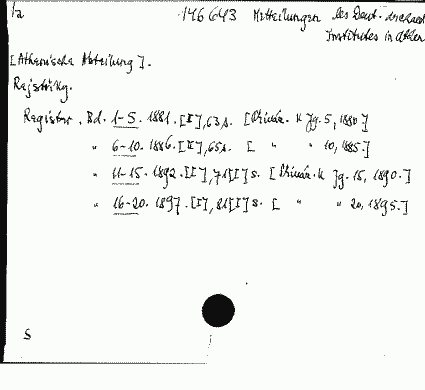 1a 146 643 Mitteilungen des Deut. archaeol
Institutes in Athen
[Athenische Abteilung].
Rejstříky.
Register. Bd. 1-5. 1881. [I], 63 s. [Příruč. k Jg. 5, 1880]
" 6-10. 1886. [I], 65 s. [ " " 10, 1885.]
" 11-15. 1892. [I], 71 [I] s. [Příruč. k Jg. 15, 1890.]
" 16-20. 1897. [I], 81 [I] s. [ " " 20, 1895.]
S